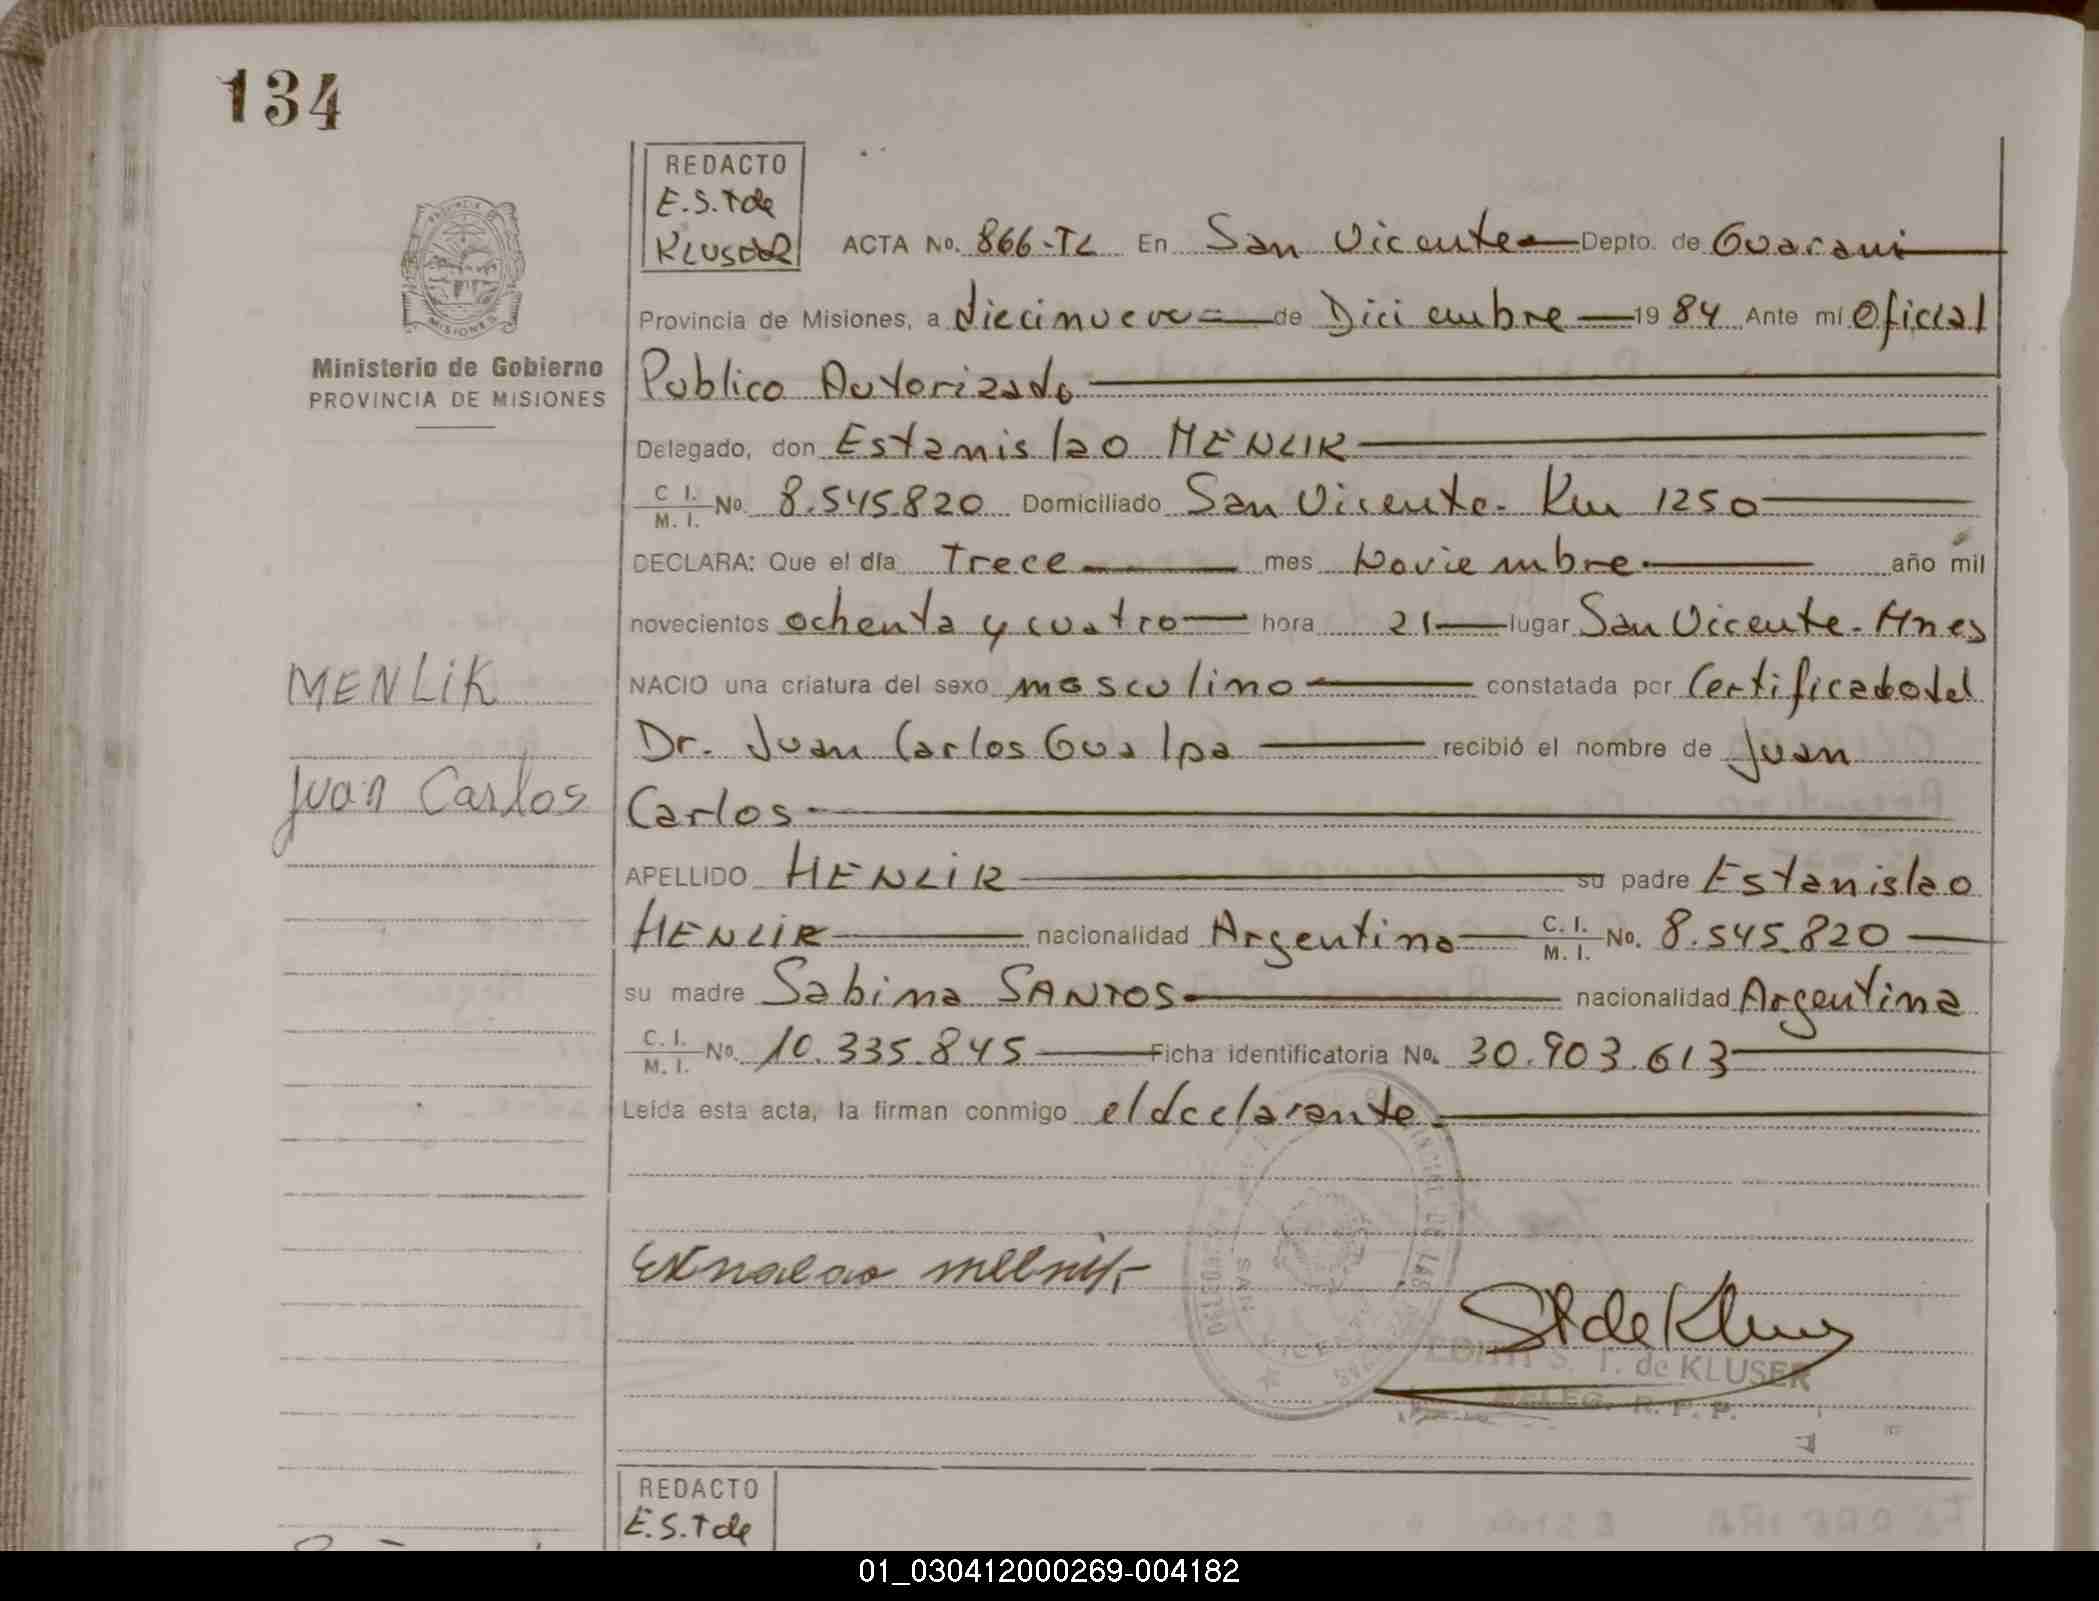 134
REDACTO
E.S.T de
KLUSER
ACTA No. 866-TL En San Vicente Depto. de Guarani
Provincia de Misiones, a diecinueve de Diciembre 1984 Ante mí Oficial
Publico Autorizado
Ministerio de Gobierno
PROVINCIA DE MISIONES
MISIONES
Delegado, don Estanislao MENLIK
C. I. / M. I. No. 8.545.820 Domiciliado San Vicente - Km 1250
DECLARA: Que el día Trece mes Noviembre año mil
novecientos ochenta y cuatro hora 21 lugar San Vicente - Mnes
NACIO una criatura del sexo masculino constatada por Certificado del
Dr. Juan Carlos Gualpa recibió el nombre de Juan
Carlos
MENLIK
Juan Carlos
APELLIDO MENLIK su padre Estanislao
MENLIK nacionalidad Argentino C. I. / M. I. No. 8.545.820
su madre Sabina SANTOS nacionalidad Argentina
C. I. / M. I. No. 10.335.845 Ficha identificatoria No. 30.903.613
Leída esta acta, la firman conmigo el declarante
EDITH S. T. de KLUSER
DELEG. R. P. P.
REDACTO
E.S.T de
01_030412000269-004182